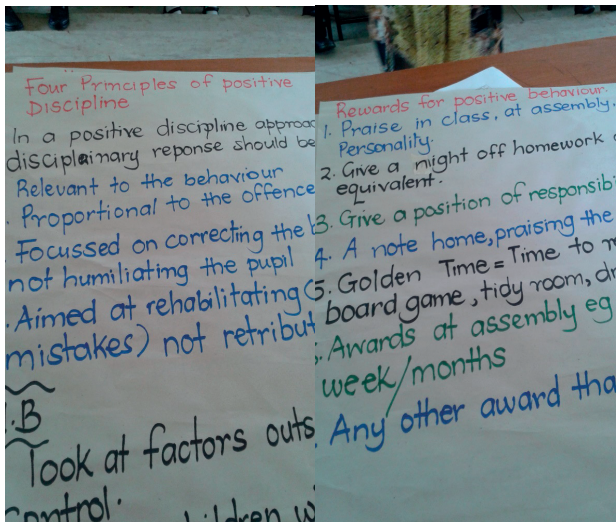 Four Principles of positive
Discipline
In a positive discipline approac
disciplainary reponse should be
Relevant to the behaviour
Proportional to the offence
Focussed on correcting the b
not humiliating the pupil
Aimed at rehabilitating (
mistakes) not retribut
.B
look at factors outs
control.
children w
Rewards for positive behaviour.
1. Praise in class, at assembly
Personality.
2. Give a night off homework
equivalent.
3. Give a position of responsibi
4. A note home, praising the
5. Golden Time = Time to
board game, tidy room, dr
Awards at assembly eg
week/months
Any other award tha